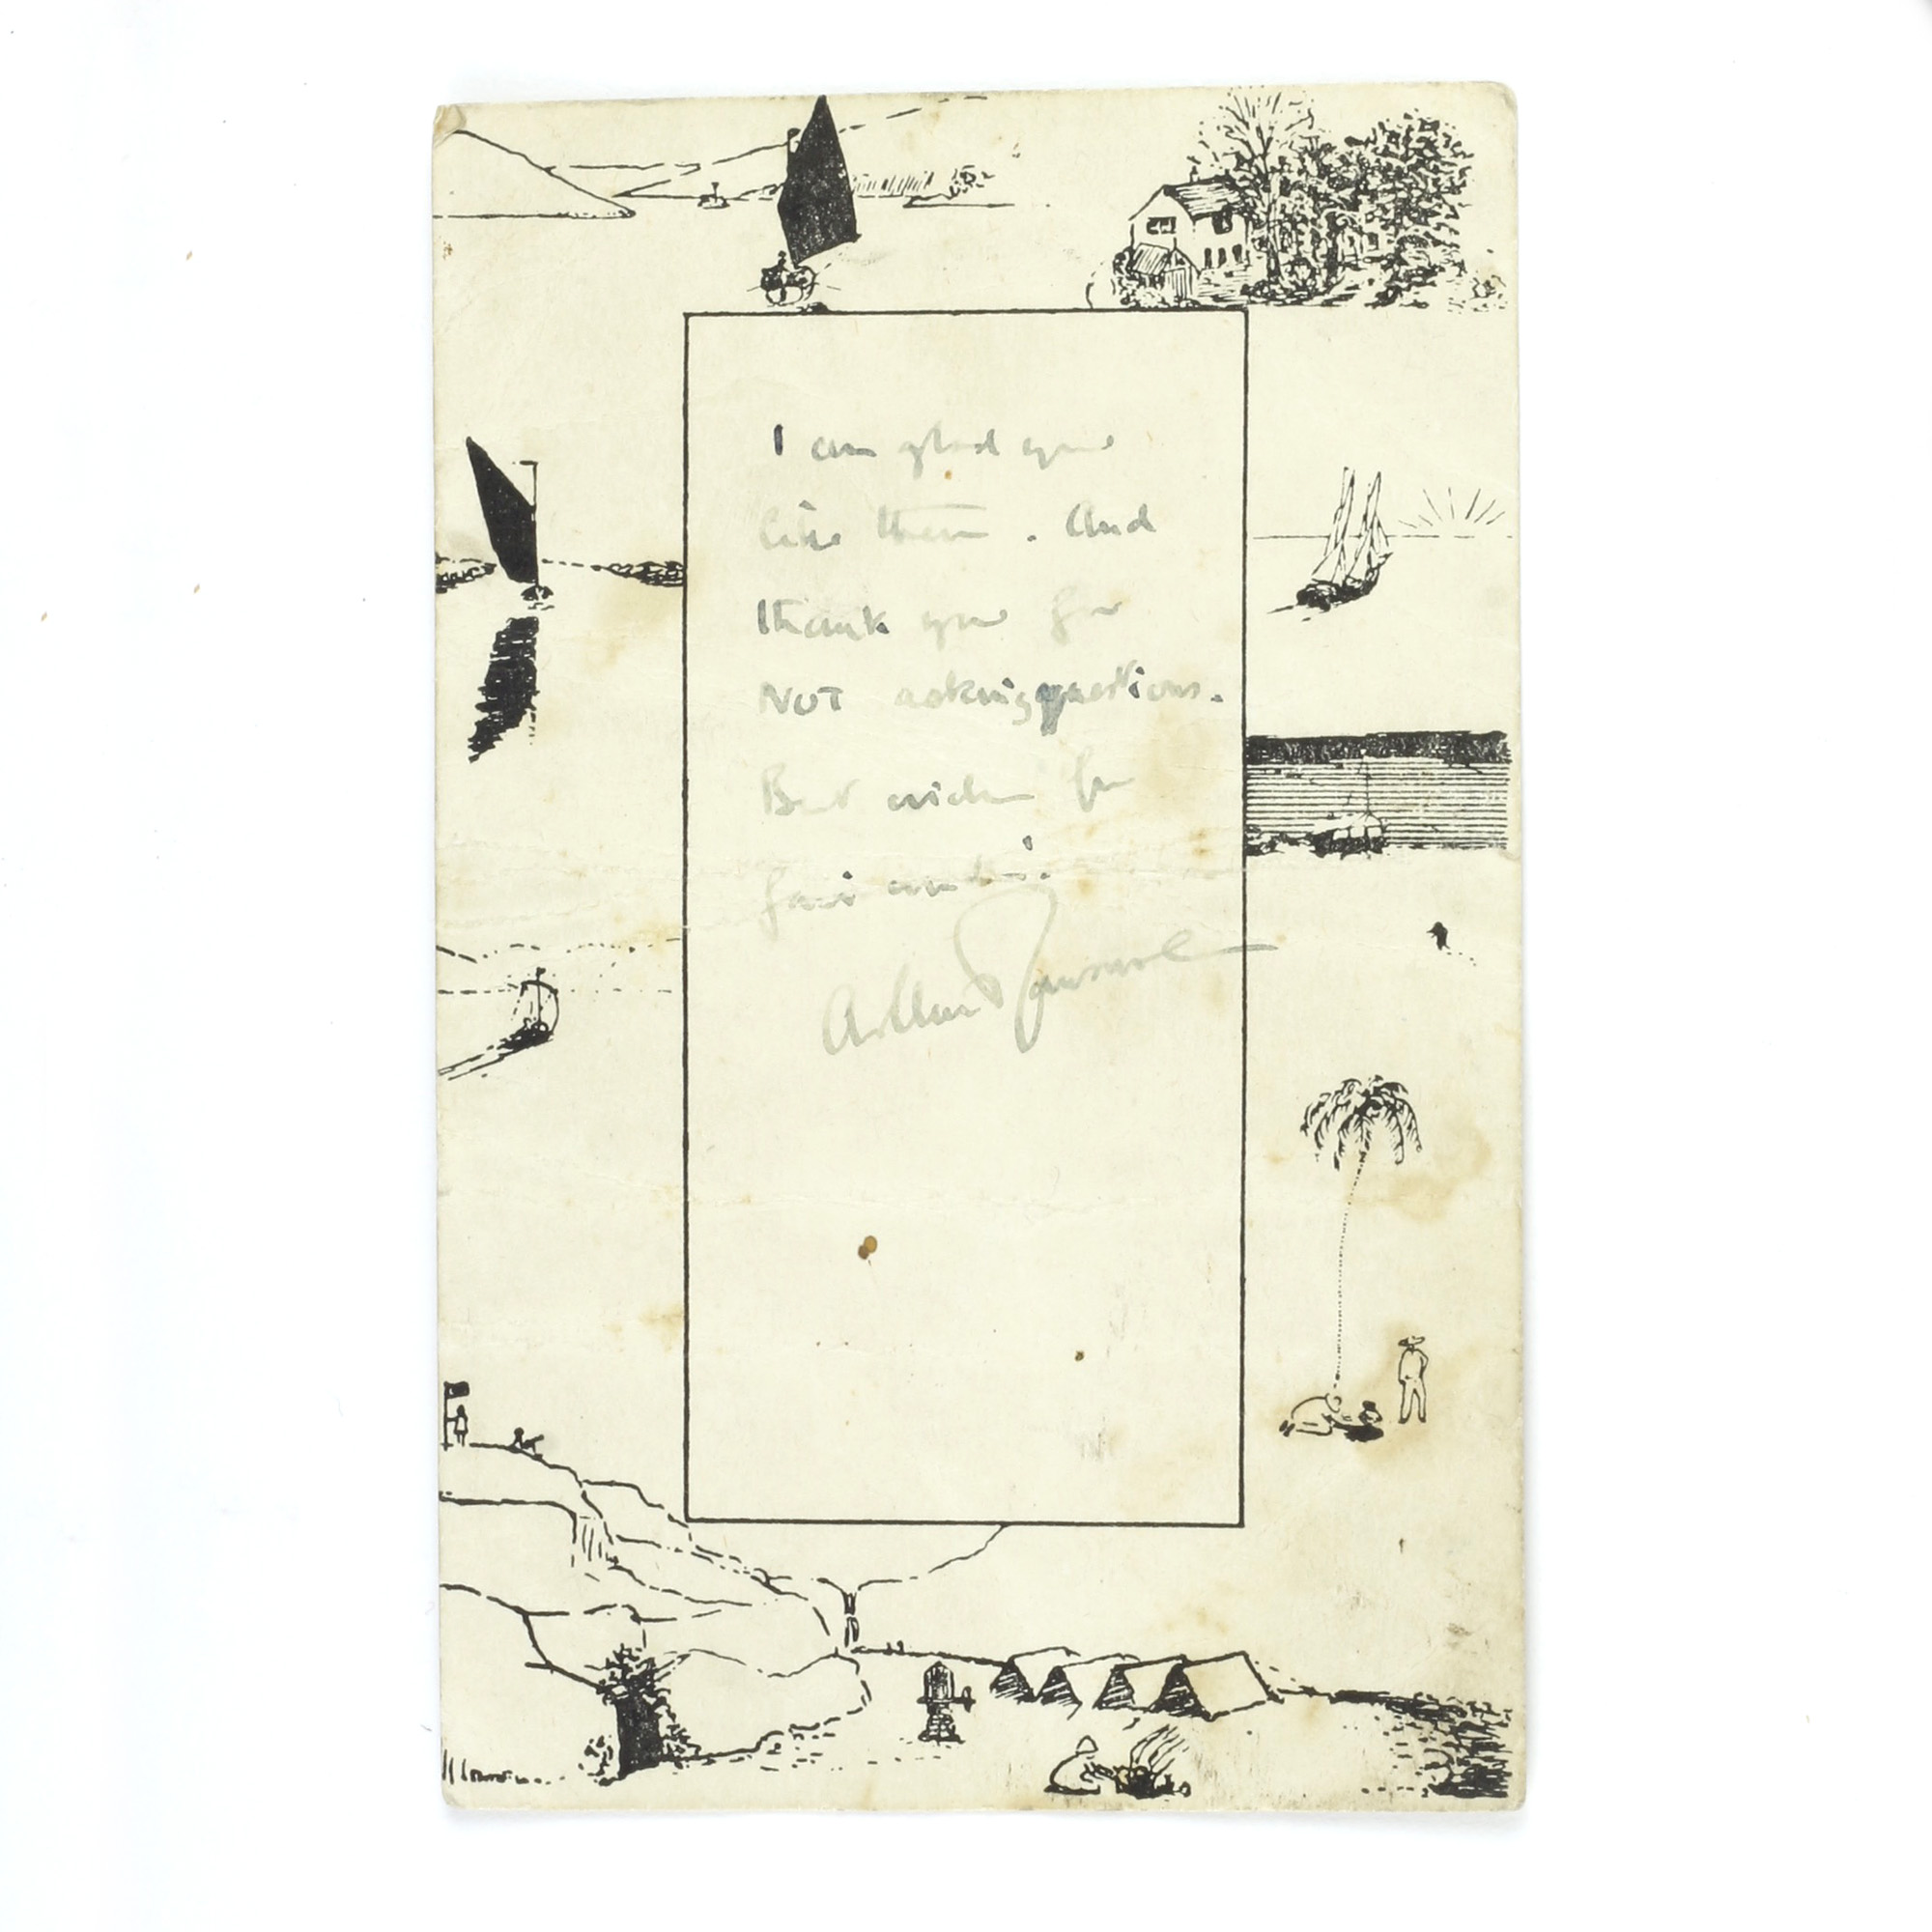 I am glad you
like them. And
thank you for
NOT asking questions.
Best wishes for
fair winds.
Arthur Ransome